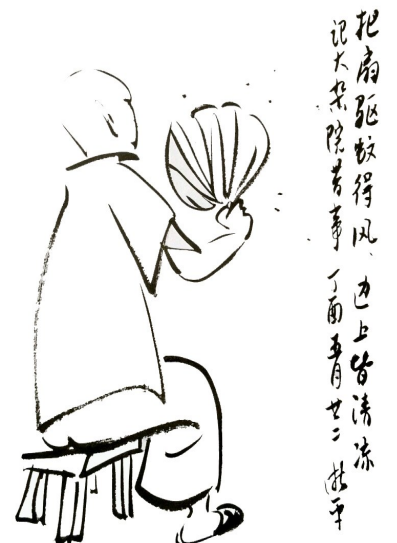 把扇驱蚊得风、边上皆清凉
记大杂院昔事 丁酉五月廿二